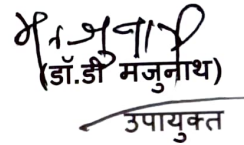 (डॉ.डी मजुनाथ)
उपायुक्त